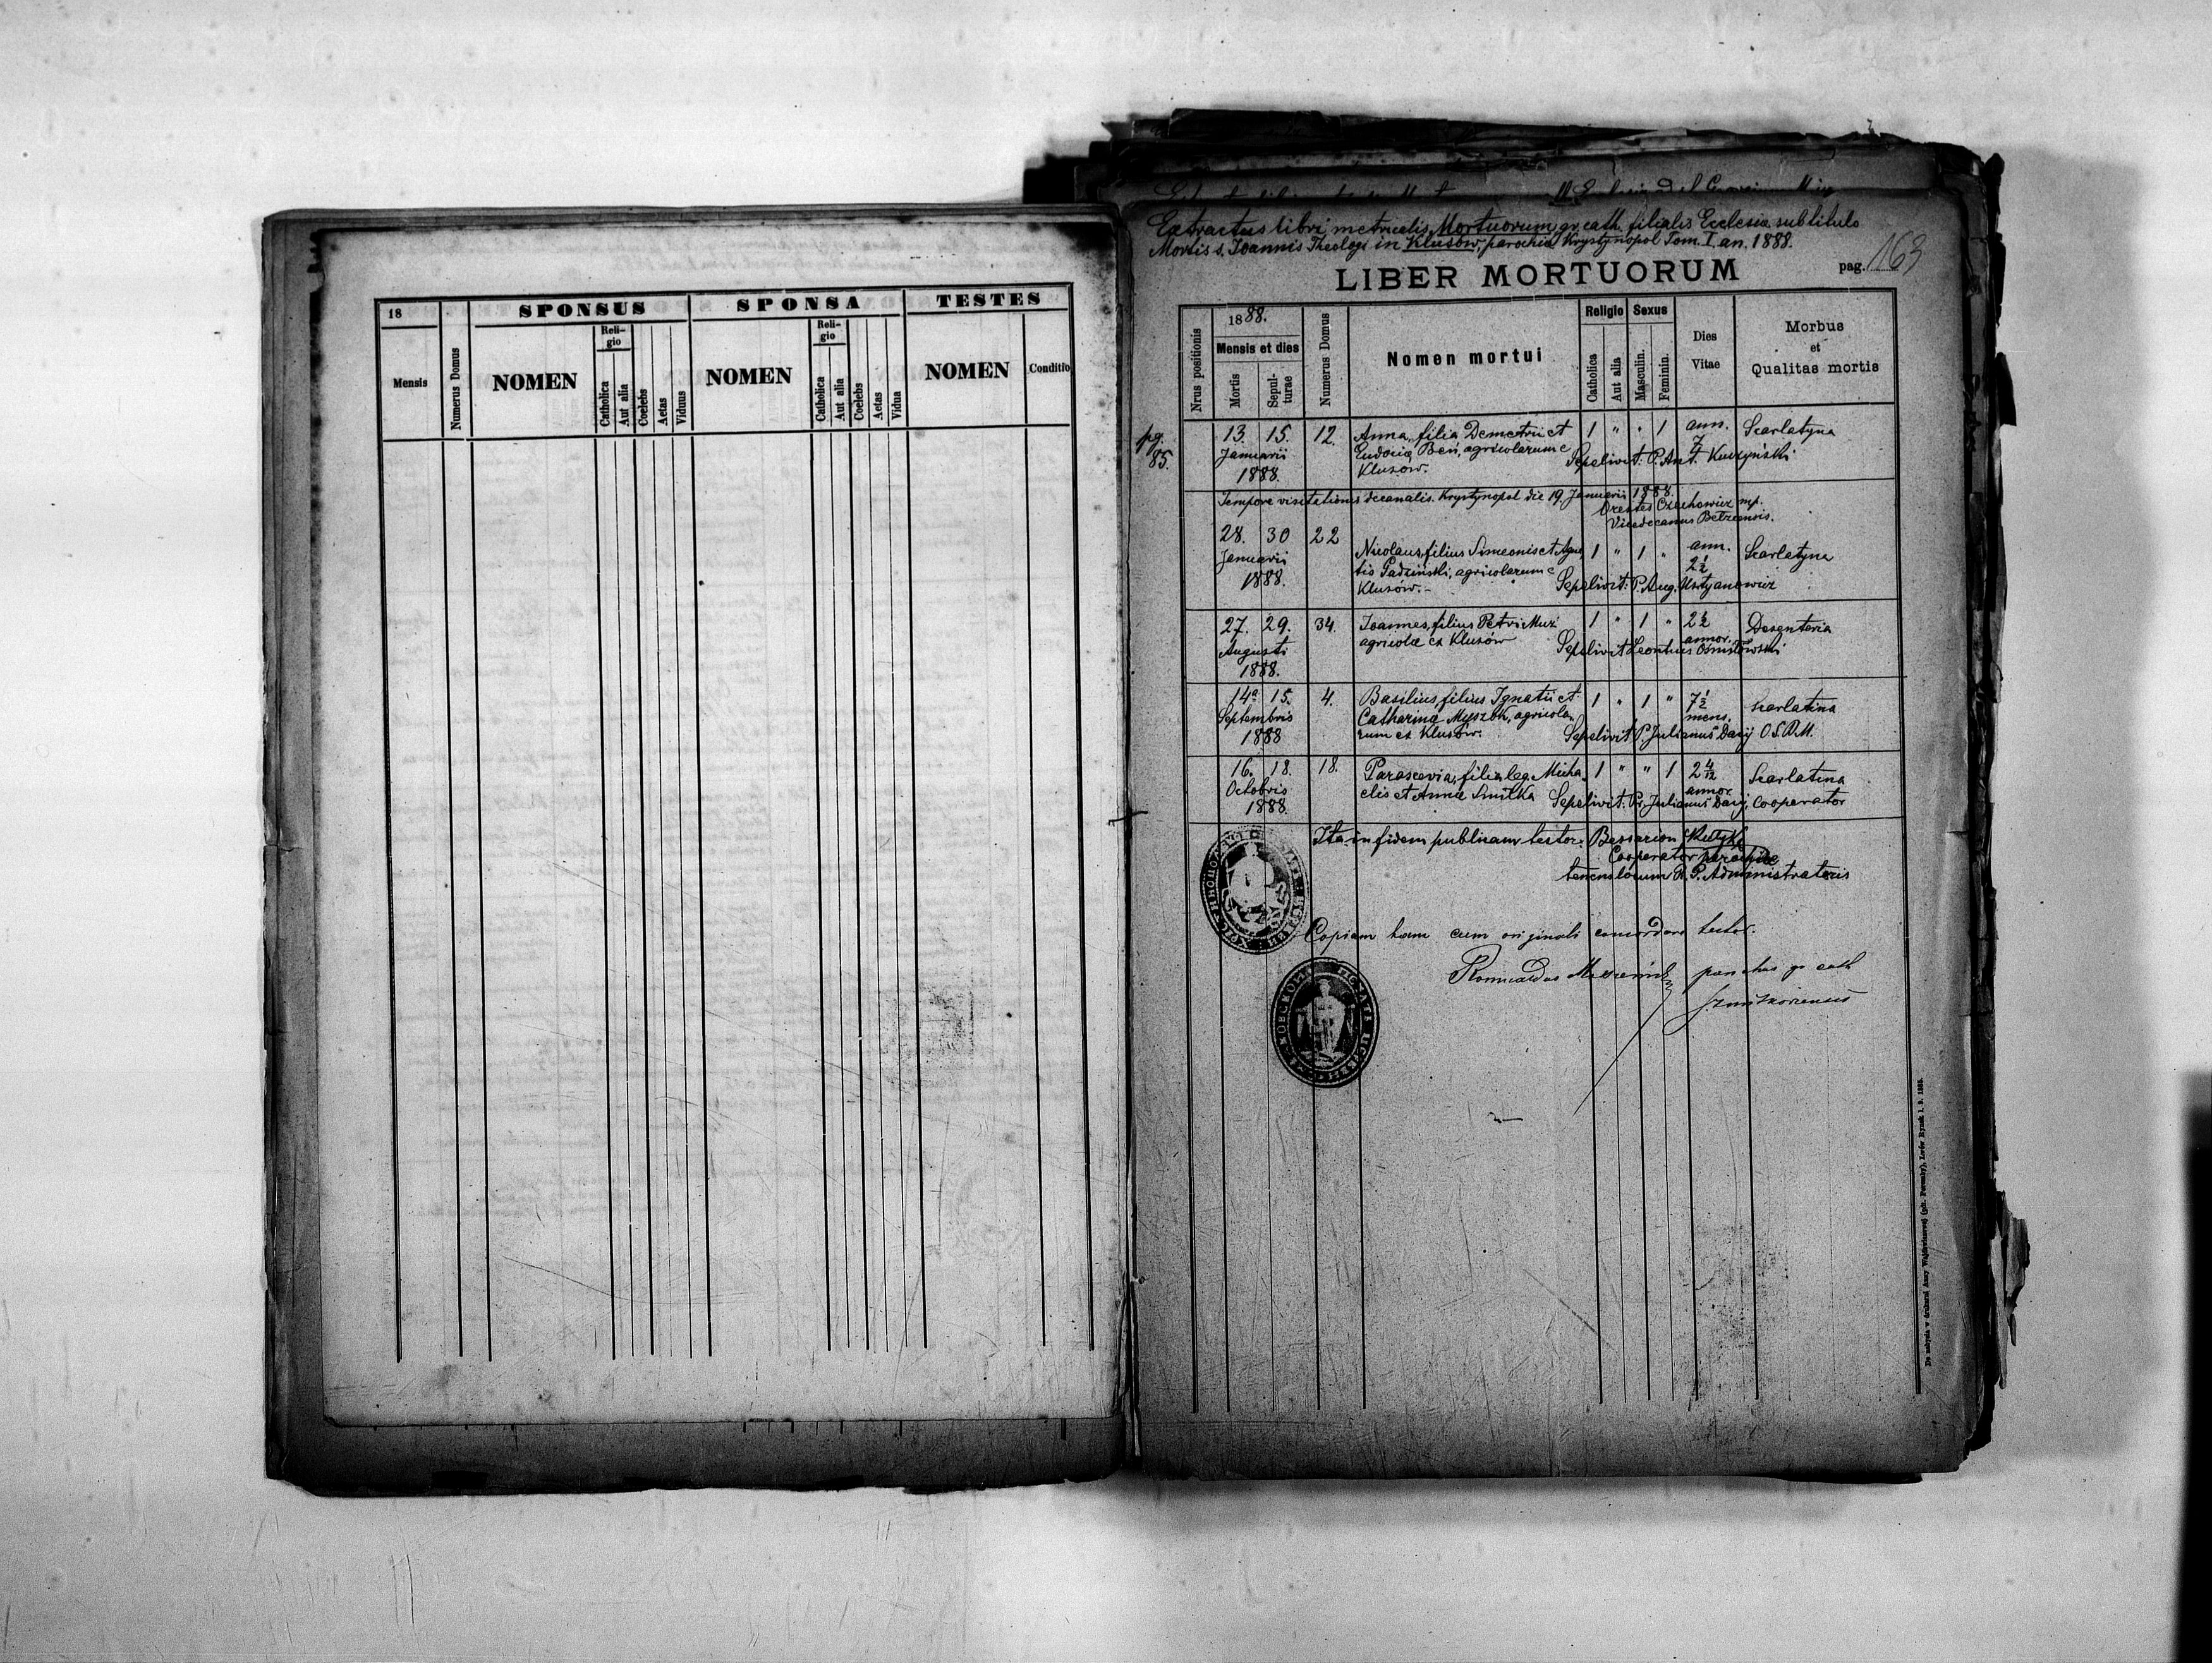 18
Mensis
Numerus Domus
SPONSUS
NOMEN
Reli-
gio
Catholica
Aut alia
Coelebs
Aetas
Viduus
SPONSA
NOMEN
Reli-
gio
Catholica
Aut alia
Coelebs
Aetas
Vidua
TESTES
NOMEN
Conditio
Extractus libri metricalis Mortuorum gr. cath. filialis Ecclesia sub titulo
Mortis s. Joannis Theologi in Klusów, parochia Krystynopol Tom. I. an. 1888.
LIBER MORTUORUM
pag. 163
Nrus positionis
1888.
Mensis et dies
Mortis
Sepul-
turae
Numerus Domus
Nomen mortui
Religio
Catholica
Aut alia
Sexus
Masculin.
Feminin.
Dies
Vitae
Morbus
et
Qualitas mortis
pg.
85.
13. 15. 12. Anna, filia Demetrii et 1 " " 1 ann. Scarlatyna
Januarii Eudocia Beń, agricolarum e 7
1888. Klusow. Sepelivit: P. Ant. Kuczyński
Tempore visitationis decanalis. Krystynopol die 19. Januarii 1888.
Orestes Czechowicz mp.
Vicedecanus Betzensis.
28. 30 22 Nicolaus, filius Simeonis et Agne 1 " 1 " ann. Scarlatyna
Januarii tis Padziński, agricolarum e 2½
1888. Klusów.- Sepelivit: P. Aug. Ustyanowicz
27. 29. 34. Joannes, filius Petri Muź 1 " 1 " 2½ Desenteria
Augusti agricolae ex Klusów annor.
1888. Sepelivit Leontius
14a 15. 4. Basilius, filius Ignatii et 1 " 1 " 7½ Scarlatina
Septembris Catharina Myszok, agricola- mens.
1888 rum ex Klusów. Sepelivit P. Julianus Dacij O.S.B.M.
16. 18. 18. Parascevia, filia leg. Micha- 1 " " 1 2 4/12 Scarlatina
Octobris elis et Annae Smitka annor.
1888. Sepelivit: Pr. Julianus Dacij, cooperator
Ita in fidem publicam testor. Bessarion
Cooperator parochiae
R. P. Administratoris
Copiam hanc cum originali concordare testor.
Romualdus parochus gr cath
De nabycia w drukarni Anny Wajdowiczowej (plt. Poremby), Lwów Rynek l. 9. 1885.